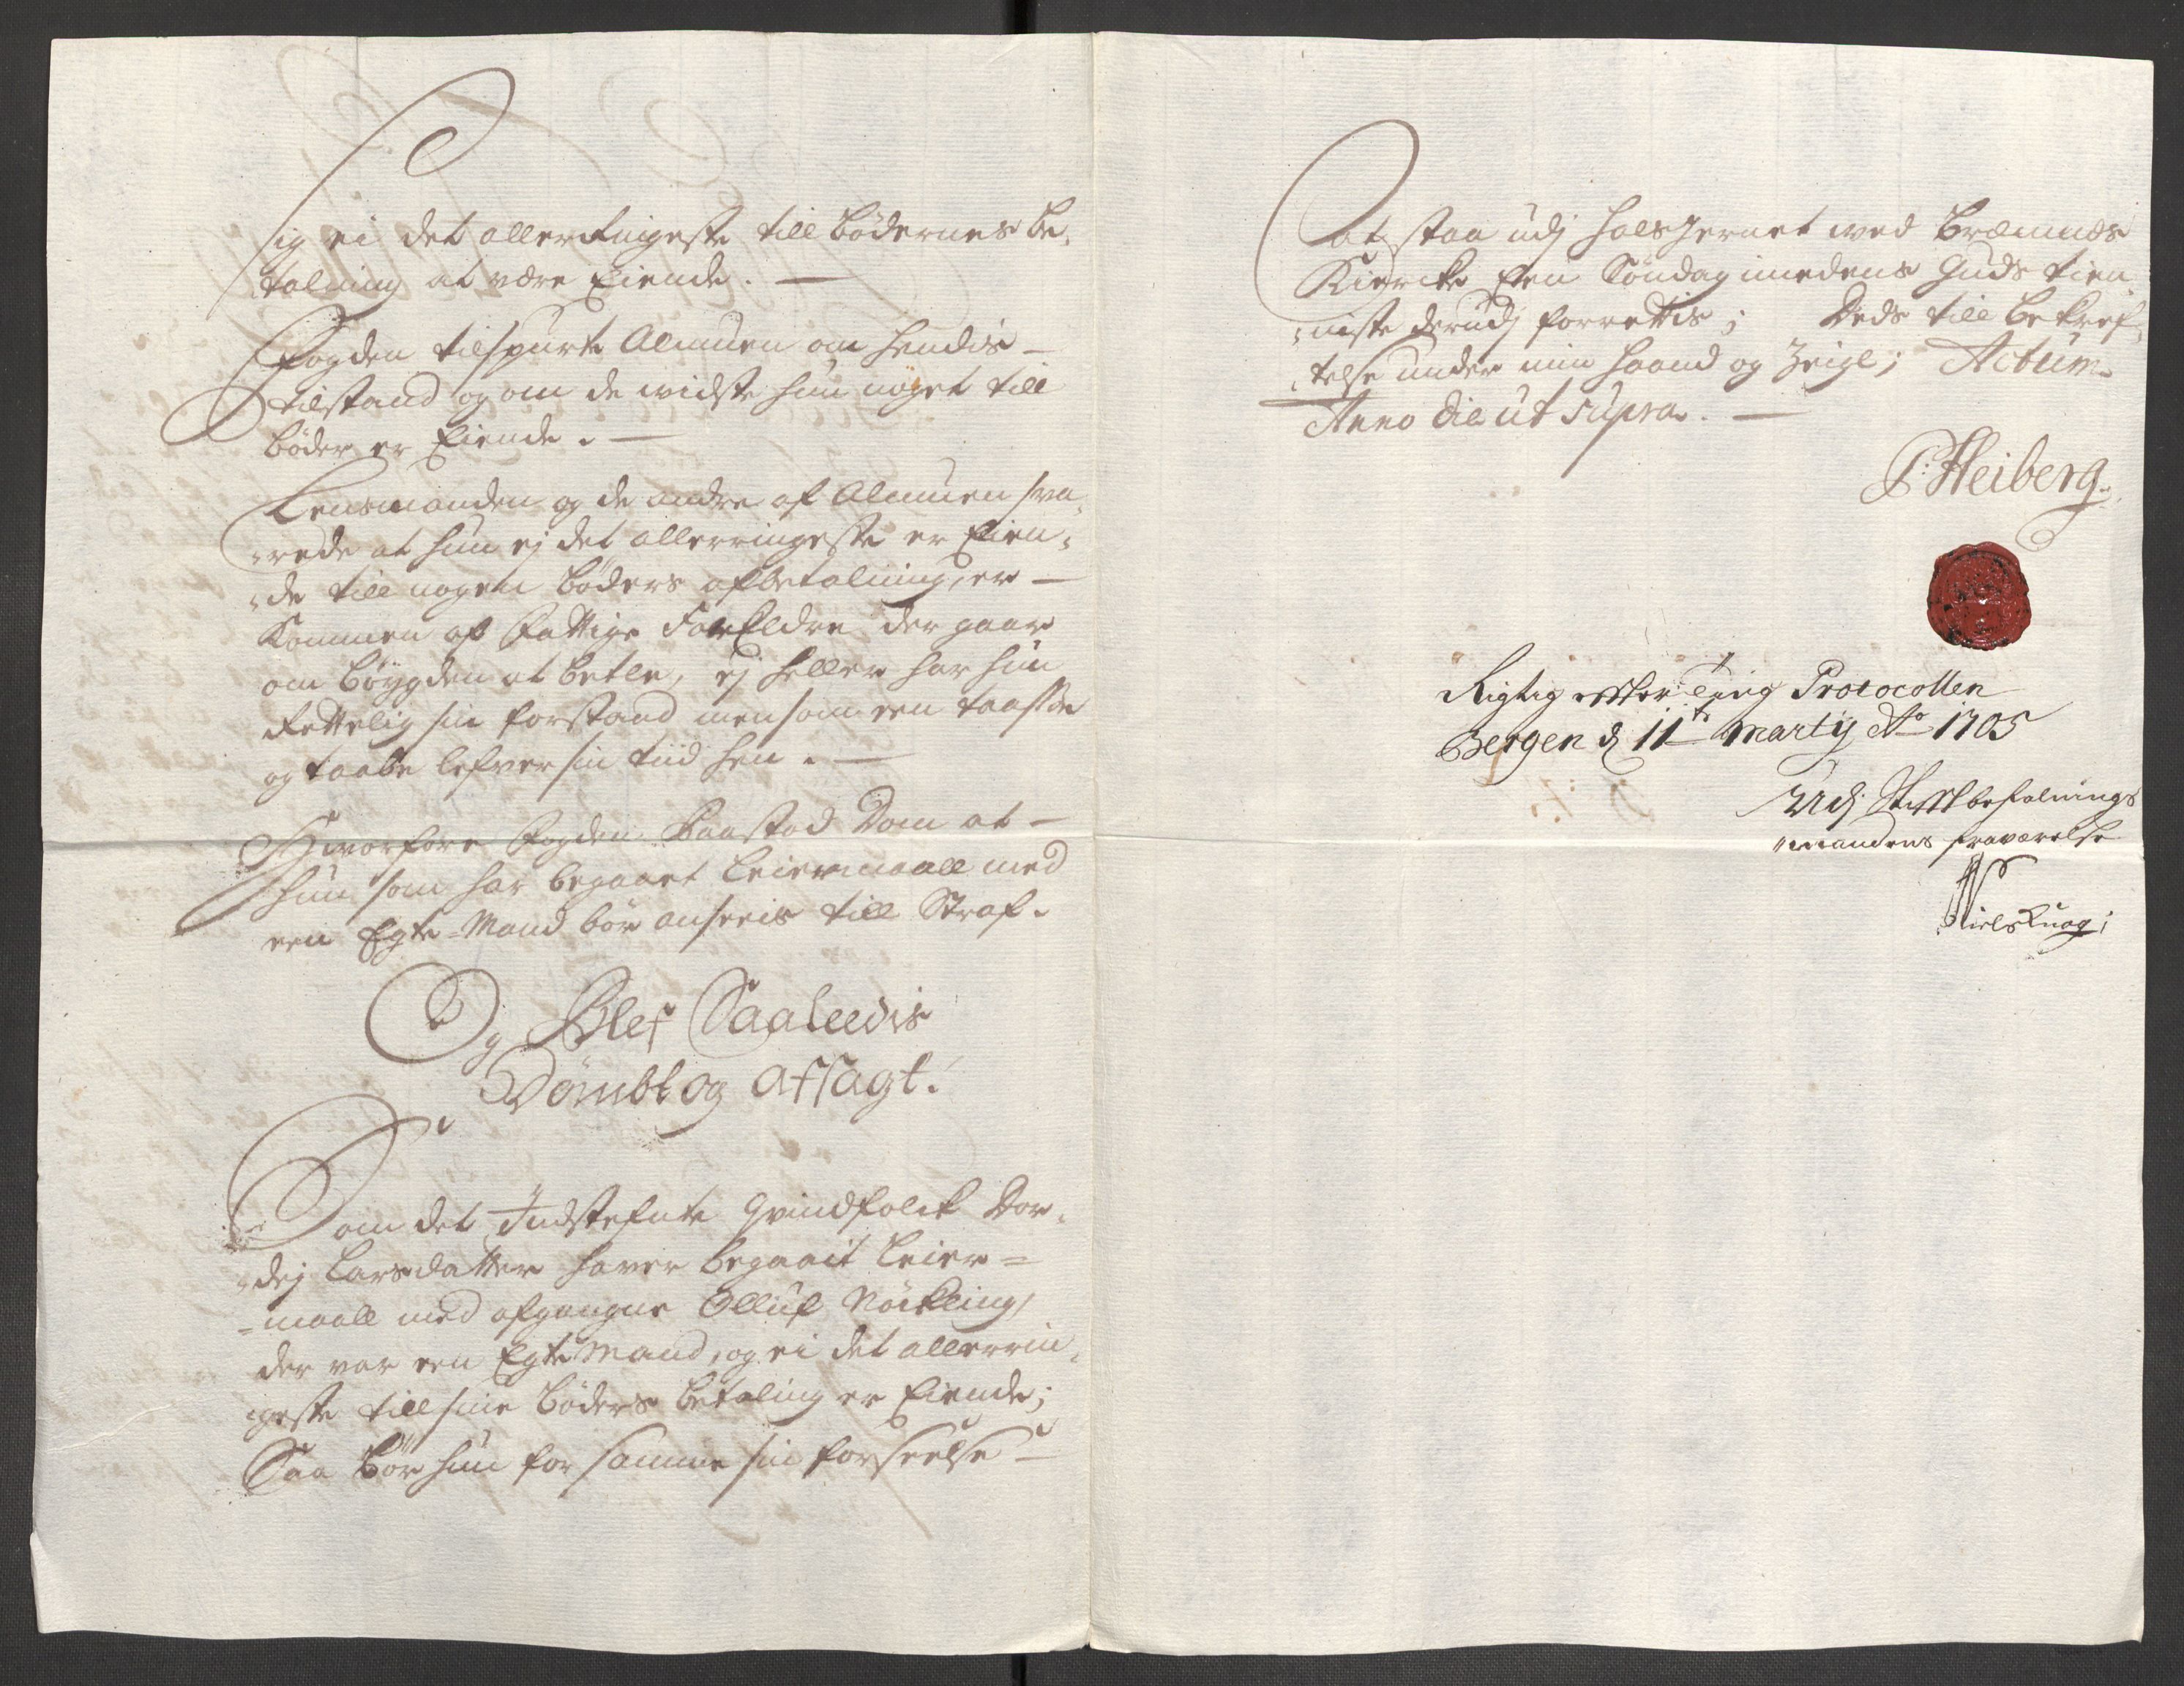 sig ei det allerringeste till bødernes be¸
talning at være Eiende. —
Fogden tilspurte Almuen om hendis —
tilstand og om de vidste hun noget till
bøder er Eiende. —
Lensmanden og de andre af Almuen sva¸
¸rede at hun ej det allerringeste er Eien¸
¸de till nogen bøders afbetalning, er —
Kommen af Fattige ForEldre der gaar
om bøygden at betle, ej heller har hun
Rettelig sin forstand men som een taasse
og taabe lefver sin tiid hen. —
Hvorfore Fogden Paastod Dom at —
hun som har begaaet Leiermaall med
een Egte-Mand bør ansees till Straf.
Og Blef Saaleedis
Dømbt og Afsagt.
Som det Indstefnte Qvindfolck Dor¸
¸dej Larsdatter haver begaait Leier=
=maall med afgangne Olluf Nøckling,
der var een Egte Mand, og ei det allerrin¸
geste till sine bøders betaling er Eiende;
Saa bør hun for samme sin forseelse —
at staa udj halsJernet ved Bræmnæs
Kiercke Een Søndag imedens Guds tien¸
¸niste derudj forrettis; Deds till bekref¸
¸telse under min haand og Zeigl; Actum
Anno die ut supra. —
P: Heiberg
Rigtig effter Ting Protocollen
Bergen d 11te Martij Ao 1705
Udj Stiftbefalnings
mandens fraværelse
Niels Knag;